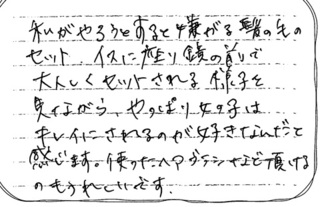 私がやろうとすると嫌がる髪の毛の
セット、イスに座り鏡の前で
大人しくセットされる様子を
見ながら、やっぱり女の子は
キレイにされるのが好きなんだと
感じます。使ったヘアブラシなど頂ける
のもうれしいです。